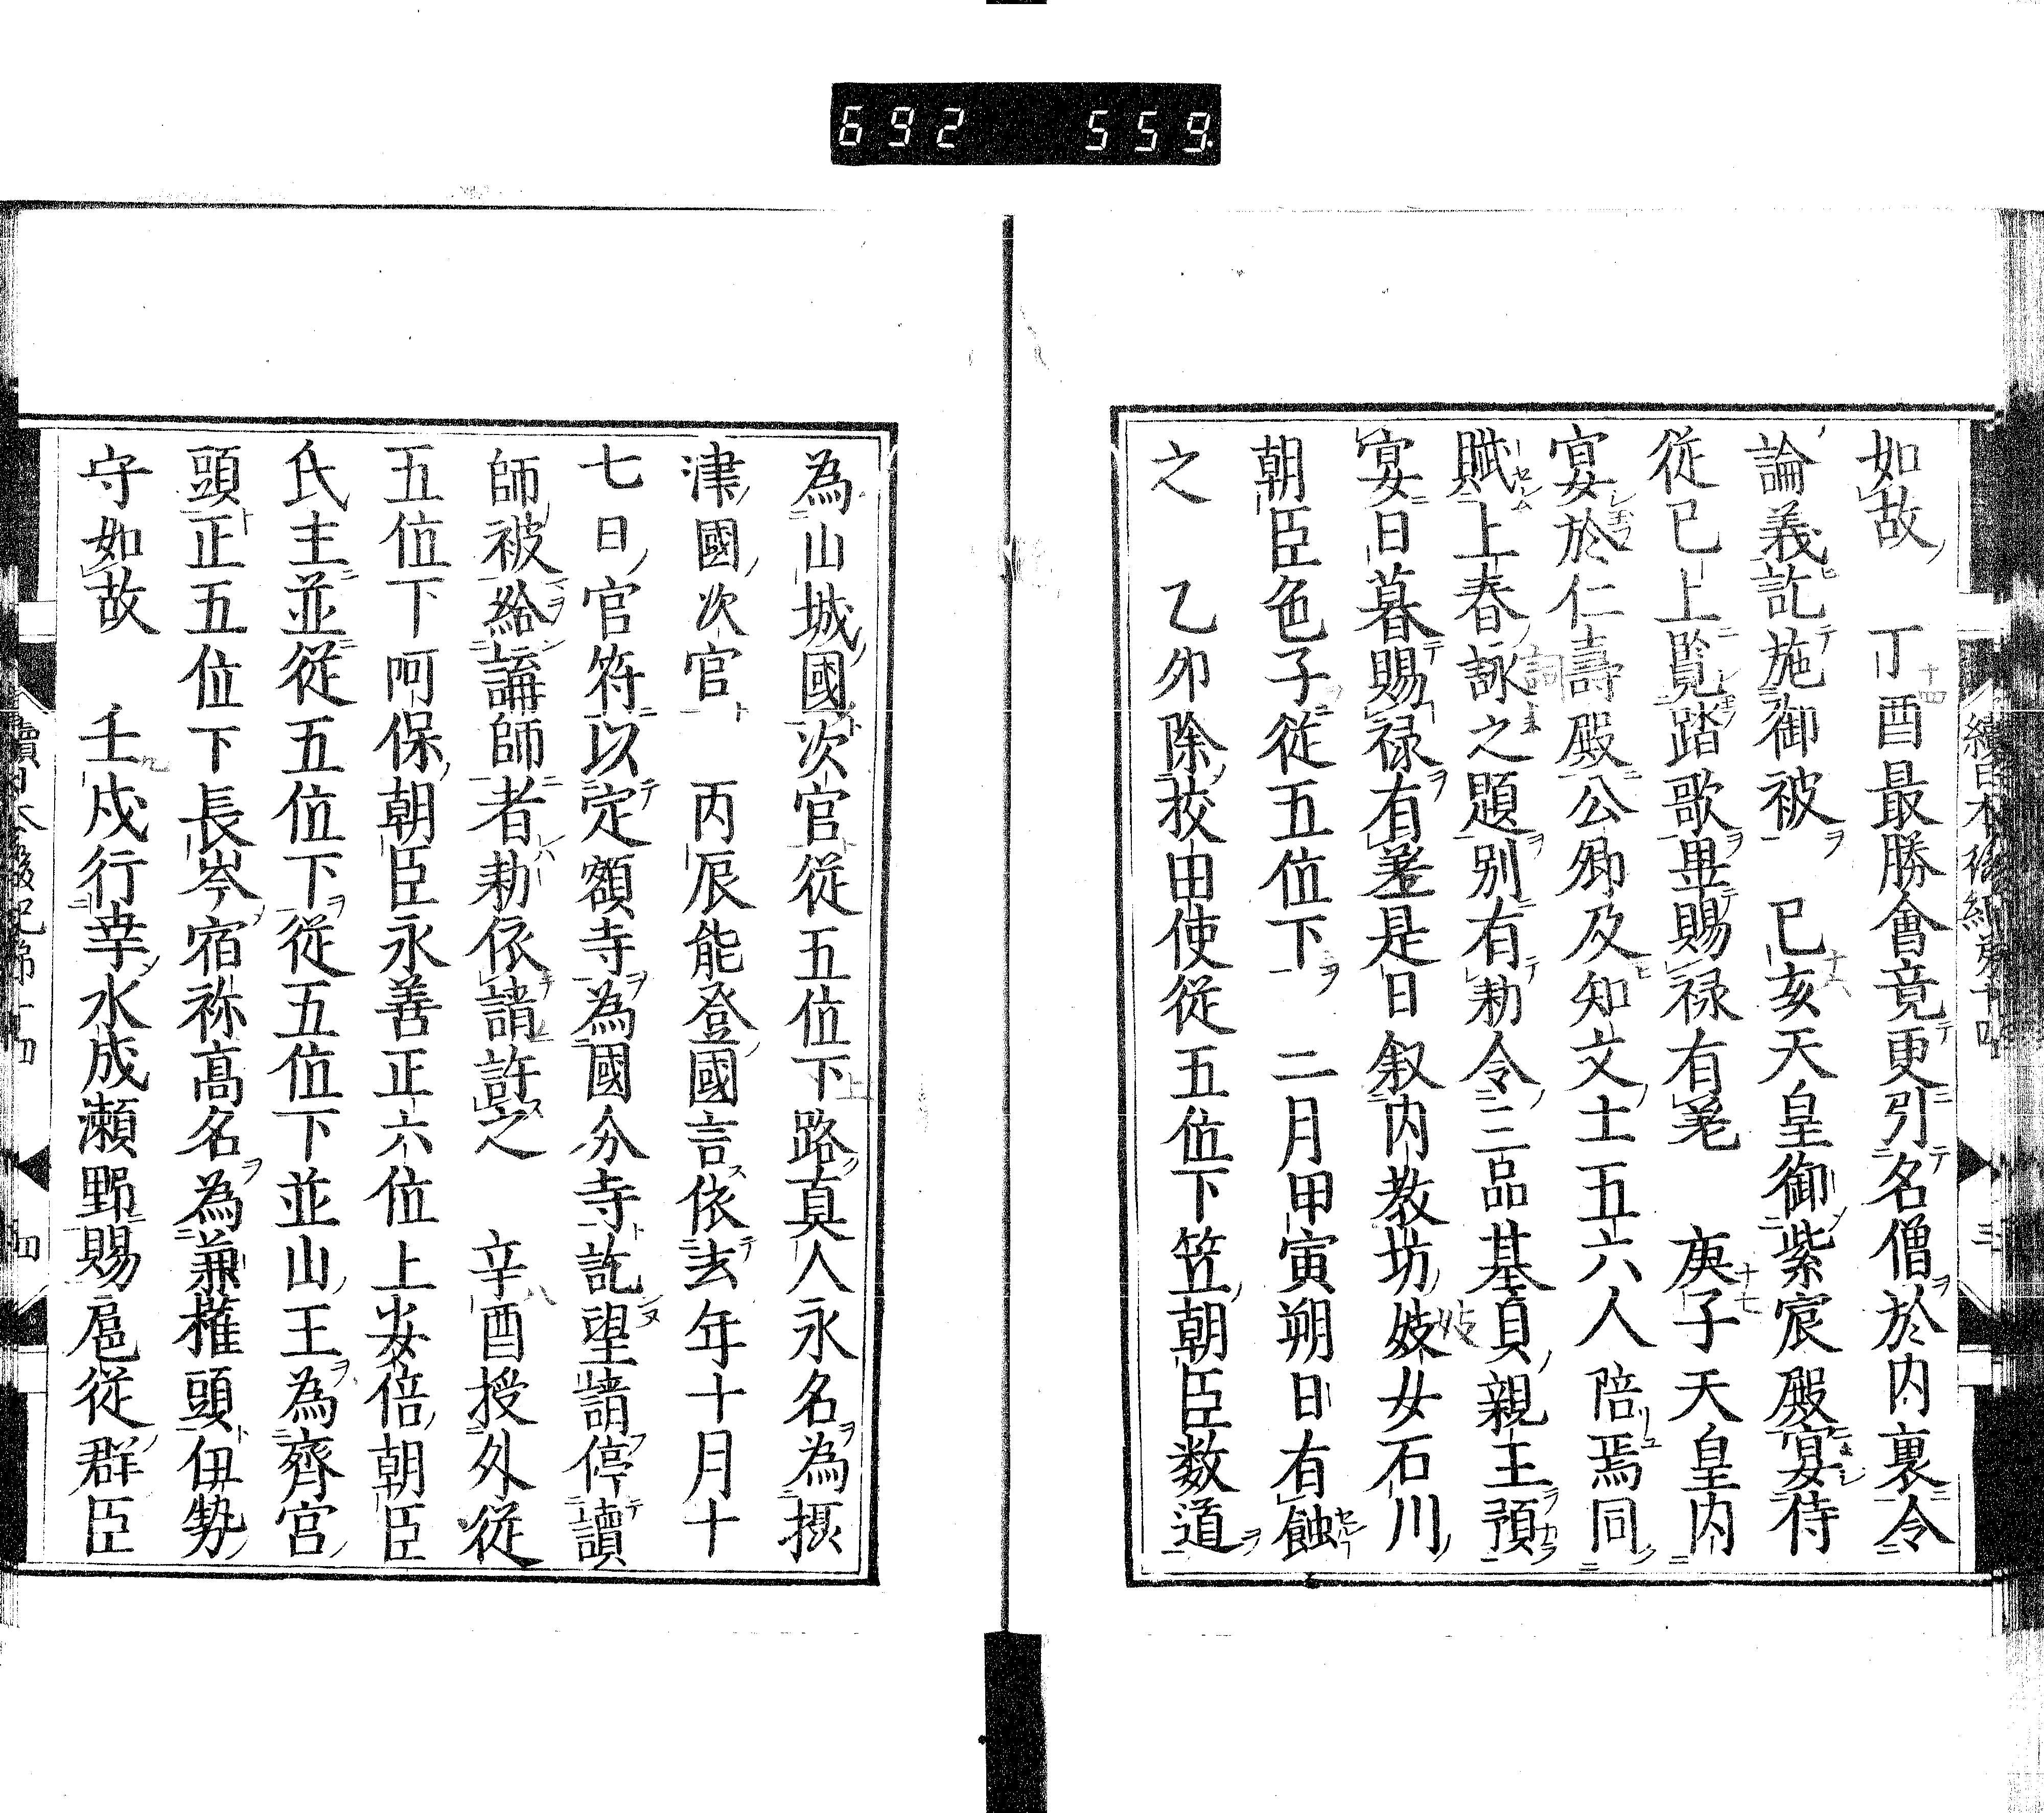 692 559
如故 丁酉最勝會竟更引名僧於内裏令
論義訖施御被 已亥天皇御紫宸殿宴侍
從已上覧踏歌畢賜禄有差 庚子天皇内
宴於仁壽殿公卿及知文士五六人陪焉同
賦上春詠之題别有勅令三品基貞親王預
宴日暮賜禄有差是日叙内教坊妓女石川
朝臣色子從五位下 二月甲寅朔日有蝕
之 乙夘除挍由使從五位下笠朝臣数道
為山城國次官從五位下路真人永名為摂
津國次官 丙辰能登國言依去年十月十
七日官符以定額寺為國分寺訖望請停讀
師被給講師者勅依請許之 辛酉授外從
五位下阿保朝臣永善正六位上安倍朝臣
氏主並從五位下從五位下並山王為齊宮
頭正五位下長岑宿祢髙名為兼権頭伊勢
守如故 壬戍行幸水成瀬野賜扈從群臣